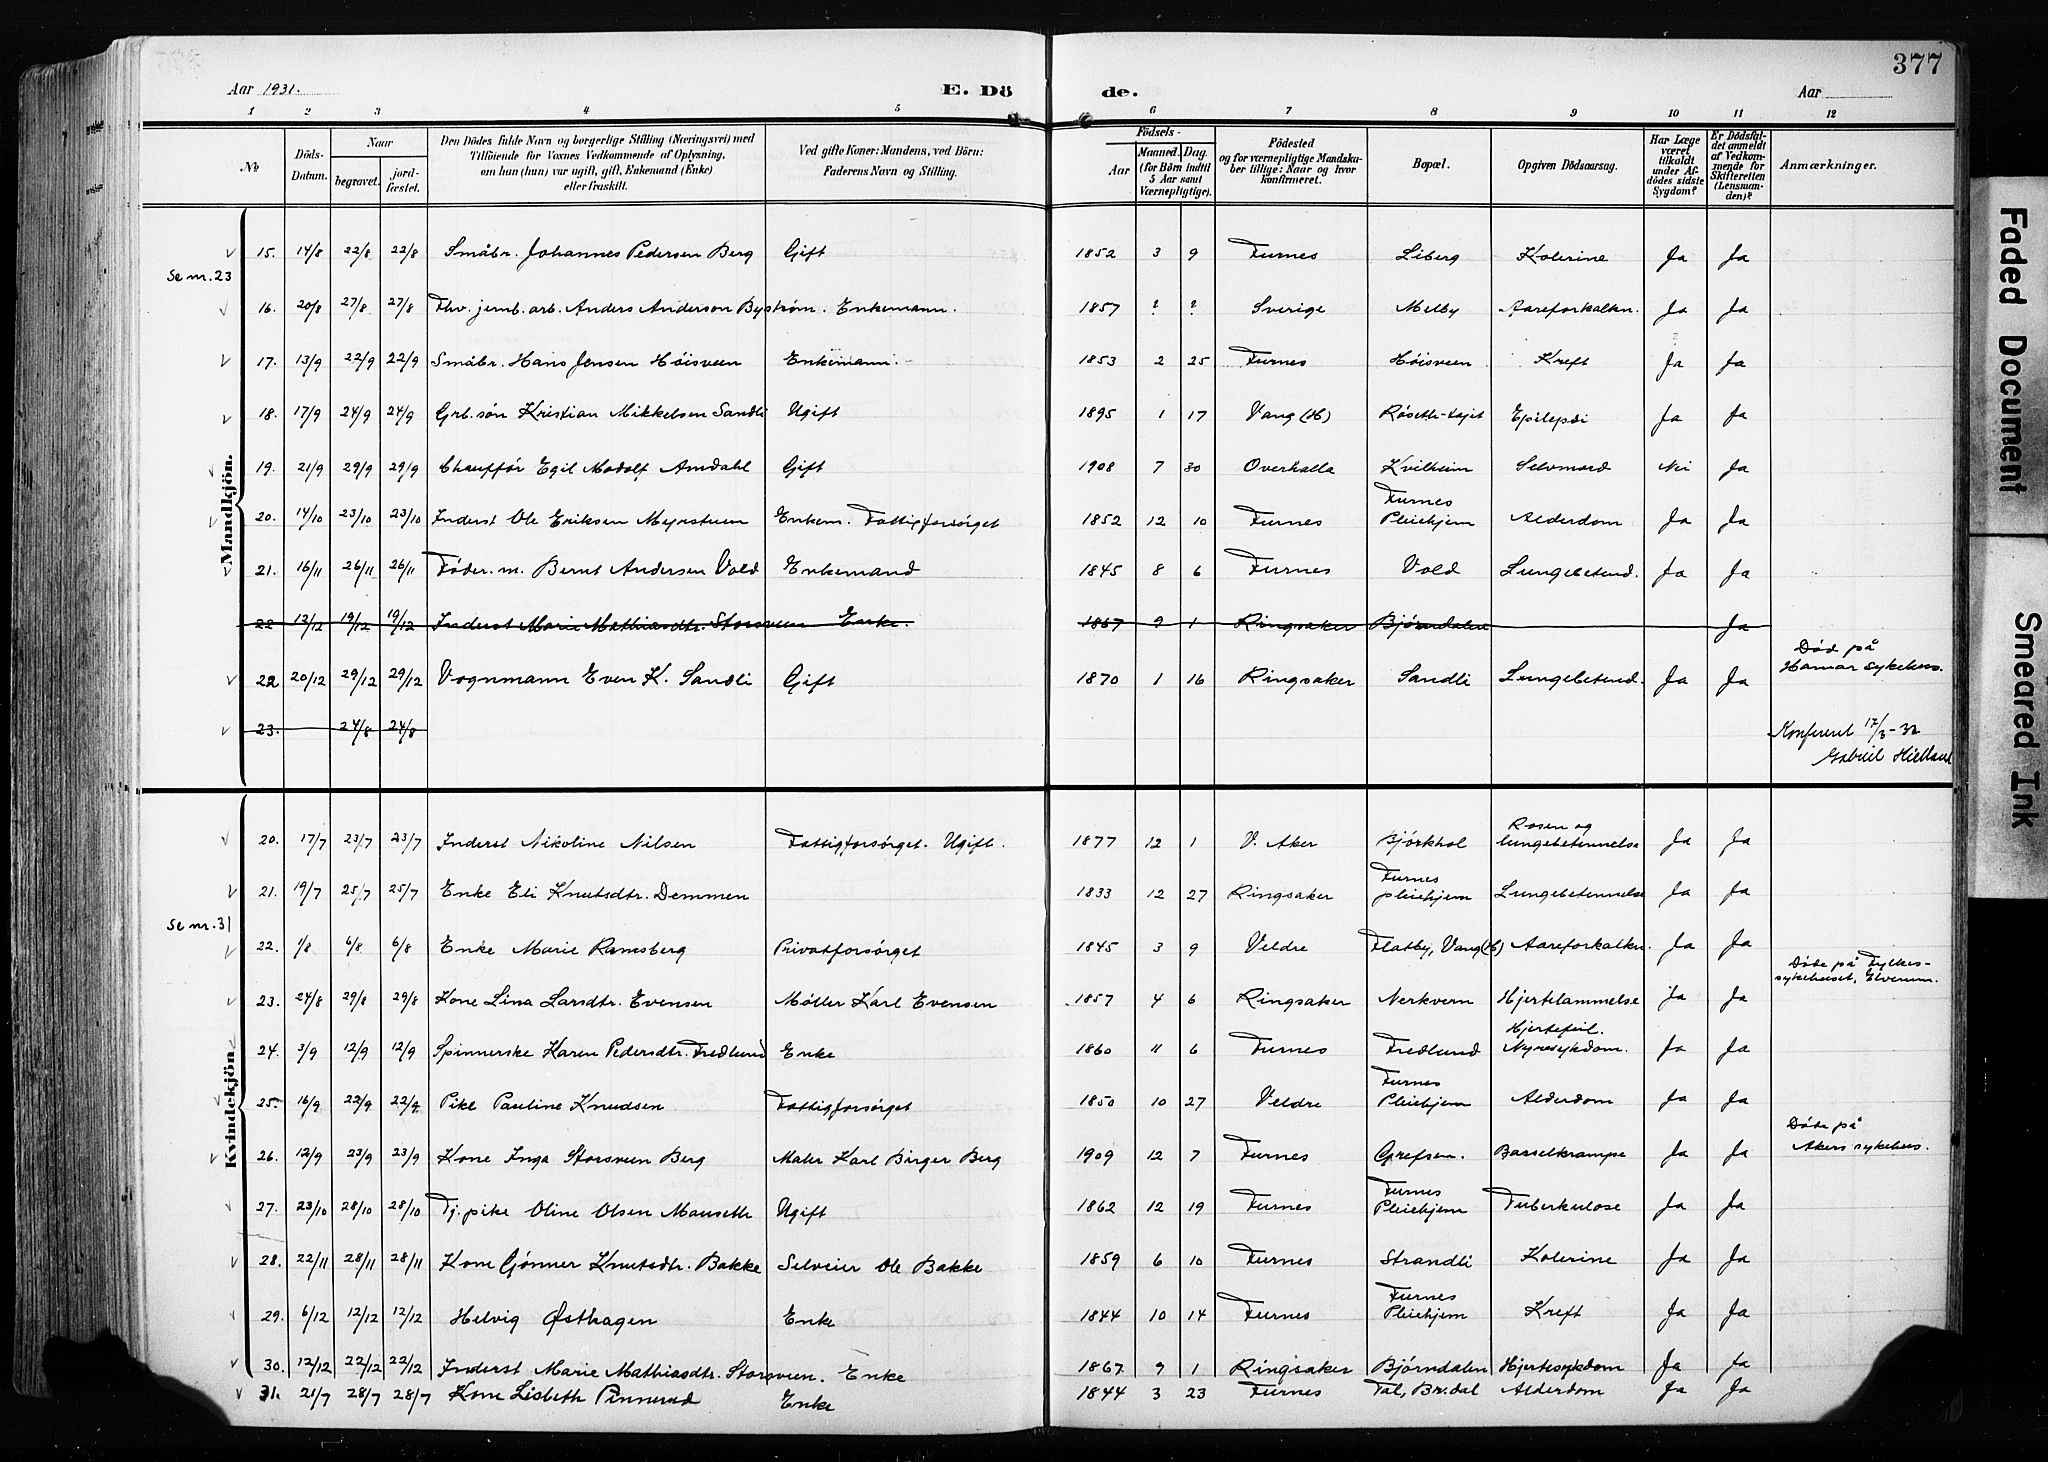 377
Aar 1931.
E. Dö de.
Aar
1 2 3 4 5 6 7 8 9 10 11 12
No
Döds-Datum.
Naar begravet. jord-fæstet.
Den Dödes fulde Navn og borgerlige Stilling (Næringsvei) med
Tilföiende for Voxnes Vedkommende af Oplysning,
om han (hun) var ugift, gift, Enkemand (Enke)
eller fraskilt.
Ved gifte Koner: Mandens, ved Börn:
Faderens Navn og Stilling.
Födsels-
Aar Maaned. Dag.
(for Börn indtil
5 Aar samt
Værnepligtige).
Födested
og for værnepligtige Mandska-
ber tillige: Naar og hvor
konfirmeret.
Bopæl.
Opgiven Dödsaarsag.
Har Læge
været
tilkaldt
under Af-
dödes sidste
Sygdom?
Er Dödsfal-
det anmeldt
af Vedkom-
mende for
Skifteretten
(Lensman-
den)?
Anmærkninger.
Mandkjön.
15. 14/8 22/8 22/8 Småbr. Johannes Pedersen Berg Gift 1852 3 9 Furnes Liberg Kolerine Ja Ja
Se nr. 23
16. 20/8 27/8 27/8 Fhv. jernb. arb. Anders Anderson Byström. Enkemann. 1857 ? ? Sverige Melby Aareforkalkn. Ja Ja
17. 13/9 22/9 22/9 Småbr. Hans Jensen Høisveen Enkemann. 1853 2 25 Furnes Høisveen Kreft Ja Ja
18. 17/9 24/9 24/9 Grb. søn Kristian Mikkelsen Sandli Ugift 1895 1 17 Vang (H) Røseth-eiet Epilepsi Ja Ja
19. 21/9 29/9 29/9 Chauffør Egil Modolf Amdahl Gift 1908 7 30 Overhalla Kvilheim Selvmord Nei Ja
20. 14/10 23/10 23/10 Inderst Ole Eriksen Myrstuen Enkem. Fattigforsørget 1852 12 10 Furnes Furnes Pleiehjem Alderdom Ja Ja
21. 16/11 26/11 26/11 Føder. m. Bernt Andersen Vold Enkemand 1845 8 6 Furnes Vold Lungebetend. Ja Ja
22 13/12 19/12 19/12 Inderst Marie Mathiasdtr. Storsveen Enke. 1867 9 1 Ringsaker Bjørndalen Ja
22 20/12 29/12 29/12 Vognmann Even K. Sandli Gift 1870 1 16 Ringsaker Sandli Lungebetend. Ja Ja Død på Hamar sykehus.
23. 24/8 24/8
Konferert 17/3-32
Gabriel Kielland
Kvindekjön.
20. 17/7 23/7 23/7 Inderst Nikoline Nilsen Fattigforsørget. Ugift. 1877 12 1 V. Aker Bjørkhol Rosen og lungebetennelse Ja Ja
21. 19/7 25/7 25/7 Enke Eli Knutsdtr. Demmen 1833 12 27 Ringsaker Furnes pleiehjem Lungebetennelse Ja Ja
Se nr. 31
22. 1/8 6/8 6/8 Enke Marie Ramsberg Privatforsørget 1845 3 9 Veldre Flatby, Vang (H) Aareforkalkn. Ja Ja
23. 24/8 29/8 29/8 Kone Lina Larsdtr. Evensen Møller Karl Evensen 1857 4 6 Ringsaker Nerkvern Hjertelammelse Ja Ja Døde på Fylkes-sykehuset, Elverum.
24. 3/9 12/9 12/9 Spinnerske Karen Pedersdtr. Fredlund Enke 1860 11 6 Furnes Fredlund Hjertefeil. Nyresykdom. Ja Ja
25. 16/9 22/9 22/9 Pike Pauline Knudsen Fattigforsørget 1850 10 27 Veldre Furnes Pleiehjem Alderdom Ja Ja
26. 12/9 23/9 23/9 Kone Inga Storsveen Berg Maler Karl Birger Berg 1909 12 7 Furnes Grefsen. Barselkrampe Ja Ja Døde på Akers sykehus.
27. 23/10 28/10 28/10 Tj. pike Oline Olsen Mauseth Ugift 1862 12 19 Furnes Furnes Pleiehjem Tuberkulose Ja Ja
28. 22/11 28/11 28/11 Kone Gønner Knutsdtr. Bakke Selveier Ole Bakke 1859 6 10 Furnes Strandli Kolerine Ja Ja
29. 6/12 12/12 12/12 Helvig Østhagen Enke 1844 10 14 Furnes Furnes Pleiehjem Kreft Ja Ja
30. 12/12 22/12 22/12 Inderst Marie Mathiasdtr. Storsveen. Enke 1867 9 1 Ringsaker Bjørndalen Hjertesykdom Ja Ja
31. 21/7 28/7 28/7 Kone Lisbeth Pinnerud Enke 1844 3 23 Furnes Tal, Br.dal Alderdom Ja Ja
Faded Document
Smeared Ink